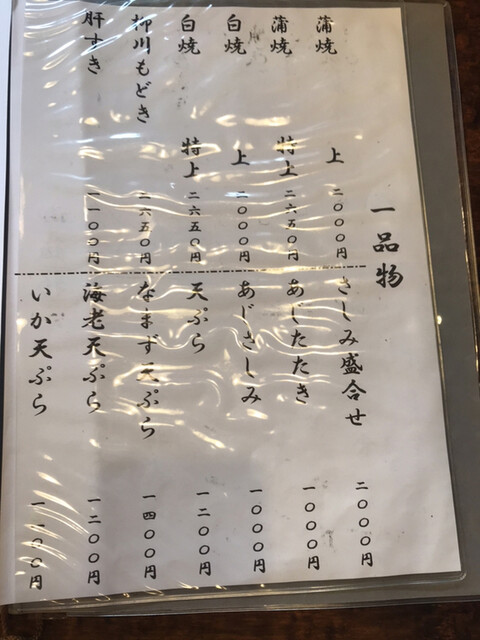 一品物
蒲焼 上 二〇〇〇円
蒲焼 特上 二六五〇円
白焼 上 二〇〇〇円
白焼 特上 二六五〇円
柳川もどき 二六五〇円
肝すき 一一〇〇円
さしみ盛合せ 二〇〇〇円
あじたたき 一〇〇〇円
あじさしみ 一〇〇〇円
天ぷら 一二〇〇円
なまず天ぷら 一四〇〇円
海老天ぷら 一二〇〇円
いか天ぷら 一一〇〇円